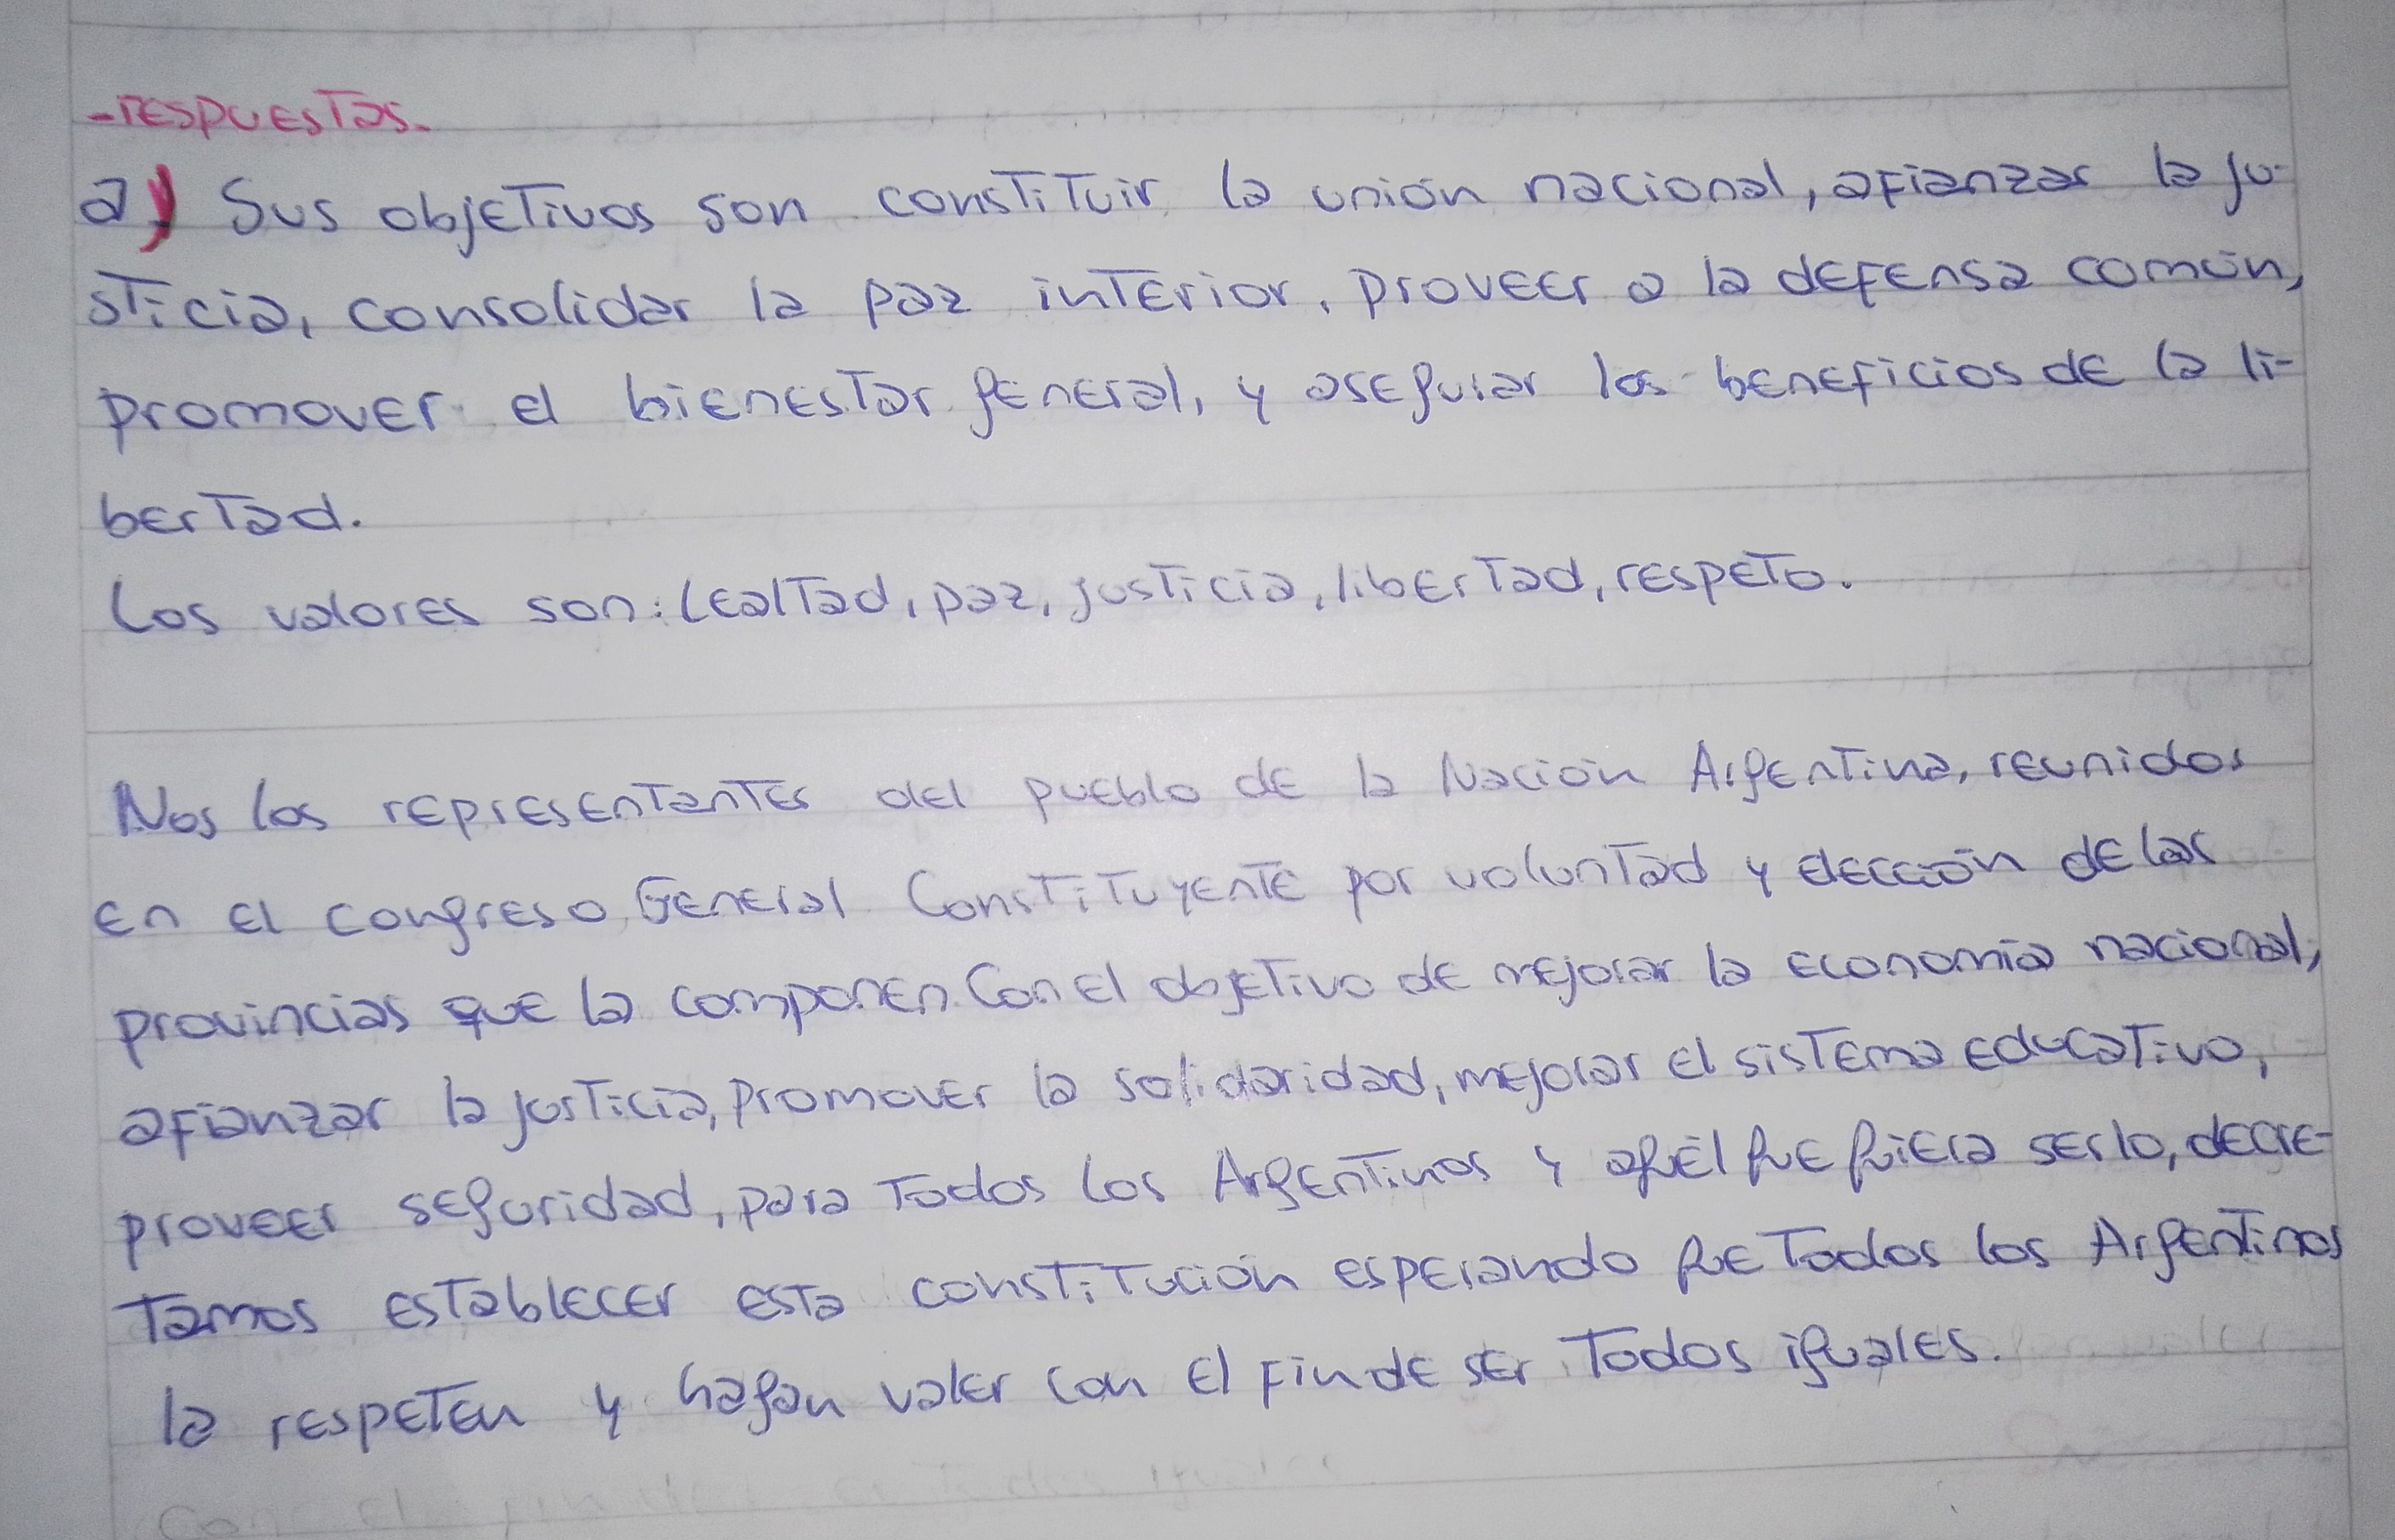 -respuestas-
a) Sus objetivos son constituir la unión nacional, afianzar la ju-
sticia, consolidar la paz interior, proveer a la defensa común,
promover el bienestar general, y asegurar los beneficios de la li-
bertad.
Los valores son: Lealtad, paz, justicia, libertad, respeto.
Nos los representantes del pueblo de la Nación Argentina, reunidos
en el congreso General Constituyente por voluntad y elección de las
provincias que la componen. Con el objetivo de mejorar la economía nacional,
afianzar la justicia, promover la solidaridad, mejorar el sistema educativo,
proveer seguridad, para todos los Argentinos y aquél que quiera serlo, decre-
tamos establecer esta constitución esperando que todos los Argentinos
la respeten y hagan valer con el fin de ser todos iguales.